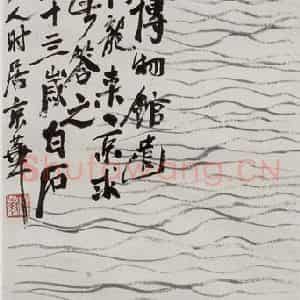 博物館
龍來京
答之
十三歲白石
人时居京華
Shufawang.CN